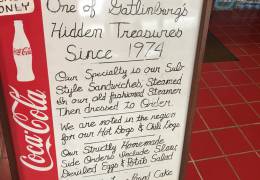 ONLY
One of Gatlinburg's
Hidden Treasures
Since 1974
Our Specialty is our Sub
Style Sandwiches, Steamed
with our old fashioned Steamer
Then dressed to Order.
We are noted in the region
for our Hot Dogs & Chili Dogs
Our Strictly Homemade
Side Orders include Slaw,
Deviled Eggs & Potato Salad
Cake
Coca-Cola